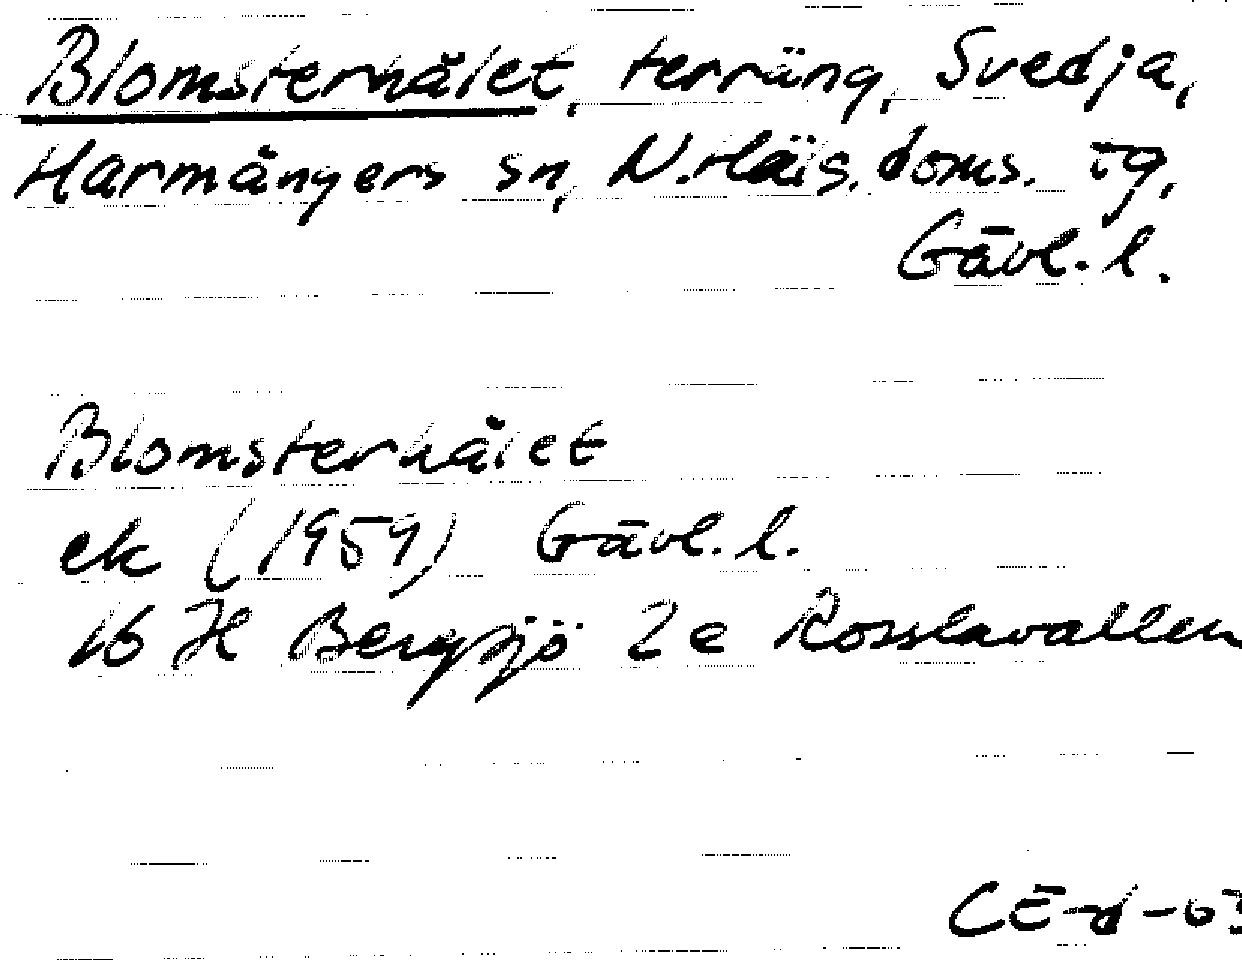 Blomsterhålet, terräng, Svedja,
Harmångers sn, N. Häls. doms. tg,
Gävl. l.
Blomsterhålet
ek (1959) Gävl. l.
16 H Bergsjö 2e Rosslavallen
CE